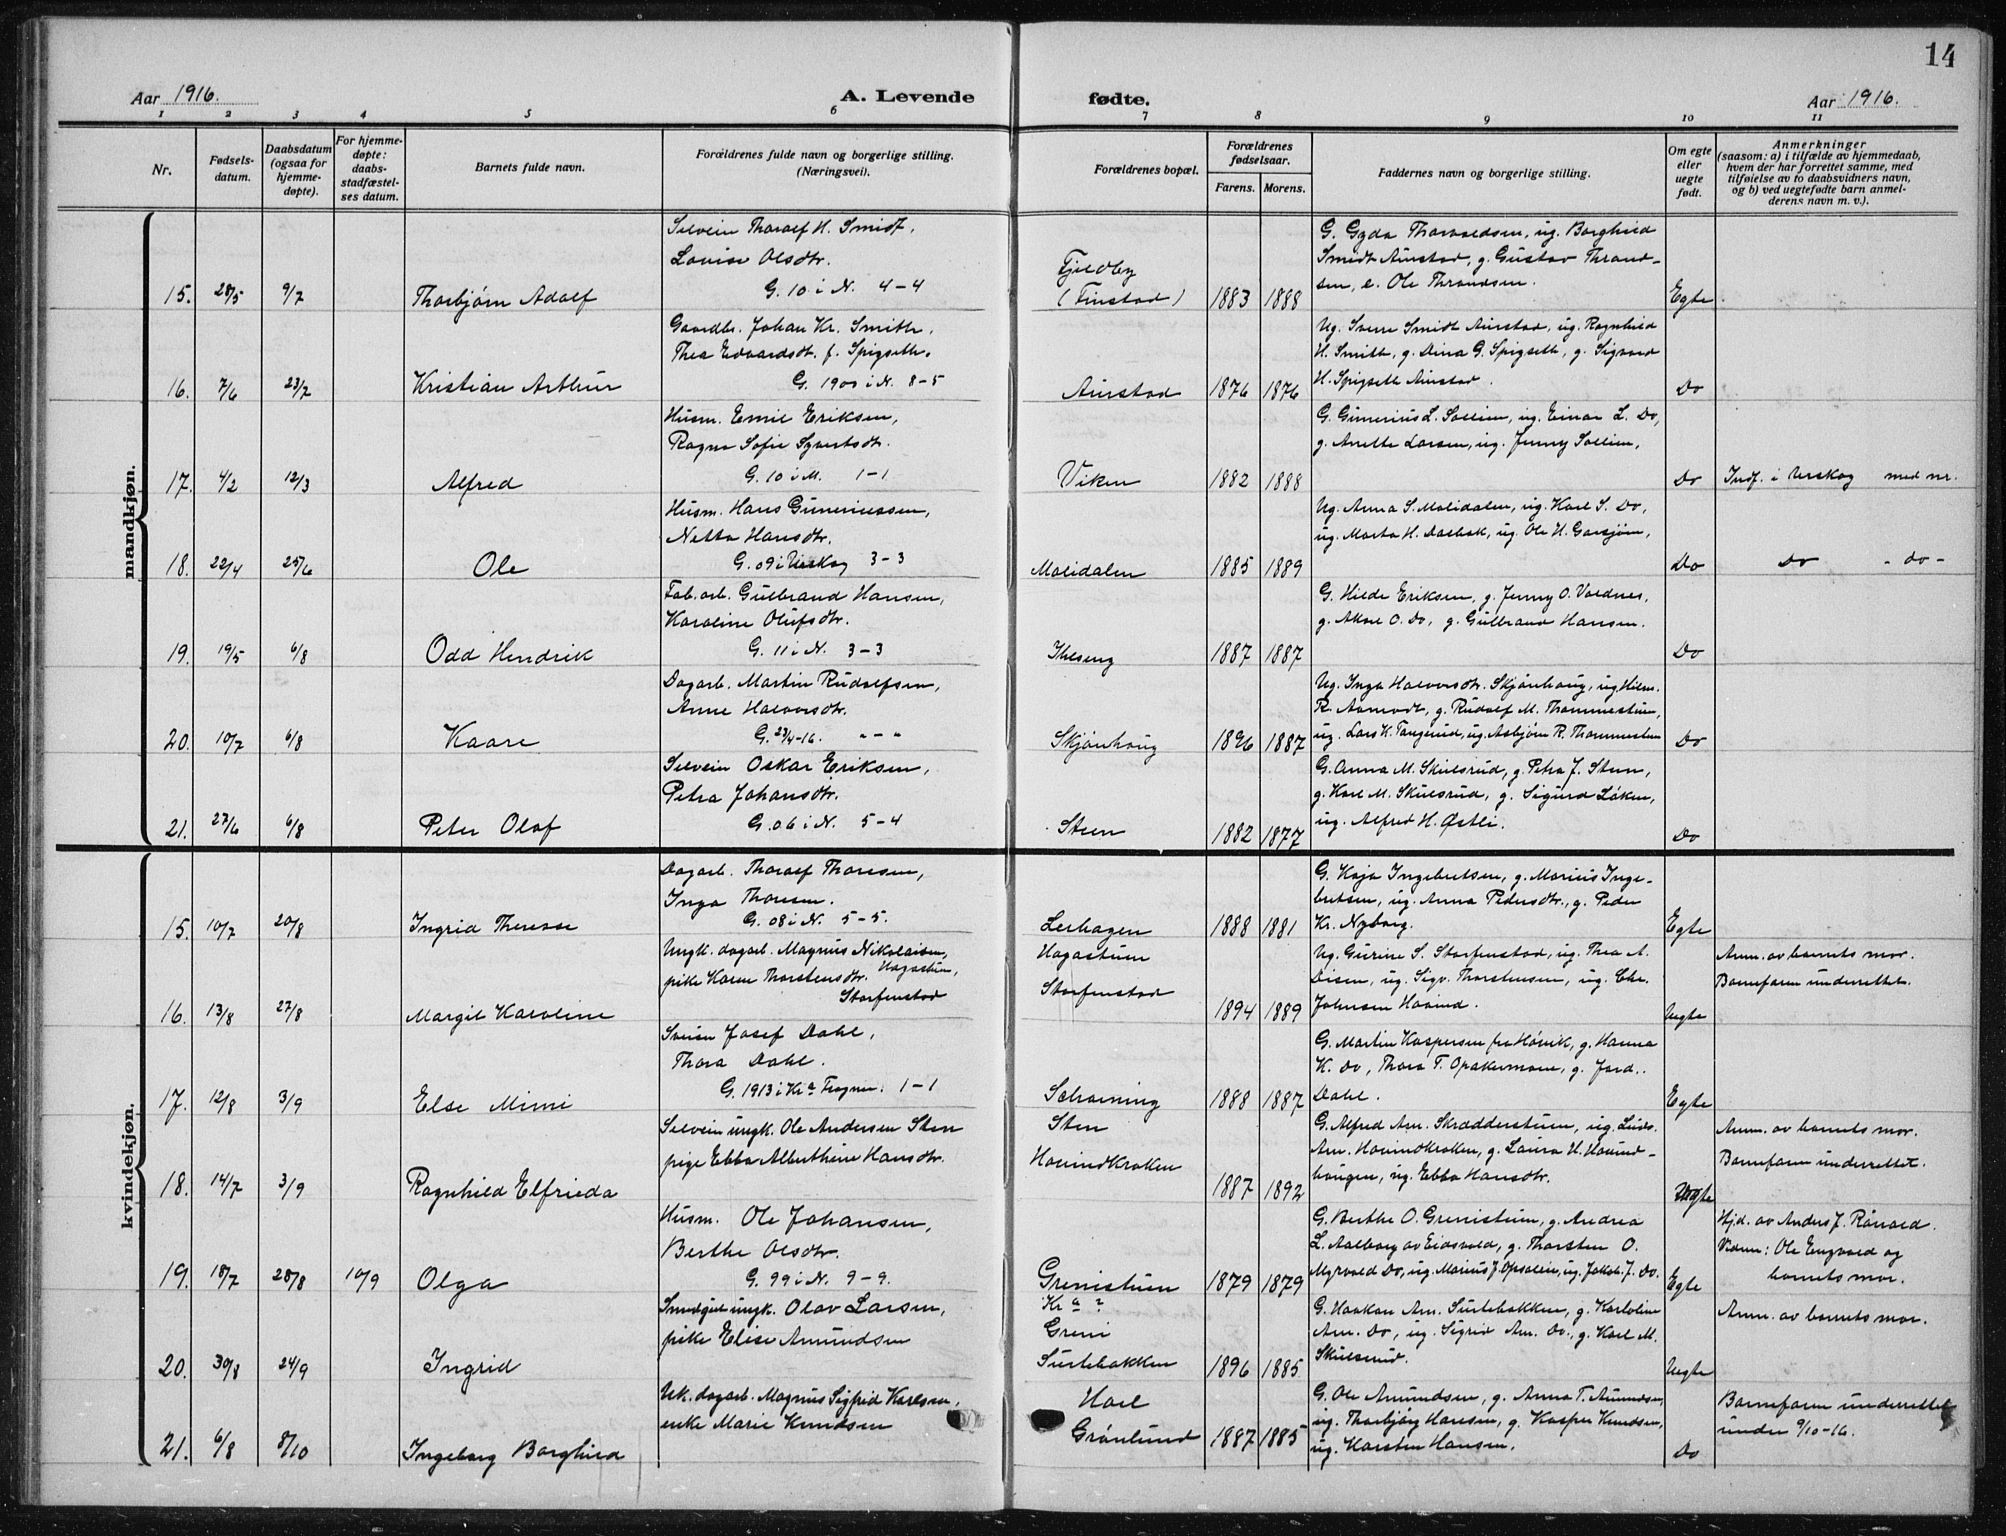 14
Aar 1916. A. Levende fødte. Aar 1916.
1 2 3 4 5 6 7 8 9 10 11
Nr.
Fødsels-
datum.
Daabsdatum
(ogsaa for
hjemme-
døpte).
For hjemme-
døpte:
daabs-
stadfæstel-
ses datum.
Barnets fulde navn.
Forældrenes fulde navn og borgerlige stilling.
(Næringsvei).
Forældrenes bopæl.
Forældrenes
fødselsaar.
Farens. Morens.
Faddernes navn og borgerlige stilling.
Om egte
eller
uegte
født.
Anmerkninger
(saasom: a) i tilfælde av hjemmedaab,
hvem der har forrettet samme, med
tilføielse av to daabsvidners navn,
og b) ved uegtefødte barn anmel-
derens navn m. v.).
mandkjøn.
15. 28/5 9/7 Thorbjørn Adolf
Selveier Thoralf H. Smidt,
Lovise Olsdtr.
G. 10 i N. 4-4
Fjeldby
(Finstad) 1883 1888
G. Gyda Thorvaldsen, ug. Borghild
Smidt Aurstad, g. Gustav Thrond-
sen, e. Ole Throndsen.
Egte
16. 7/6 23/7 Kristian Arthur
Gaardbr. Johan Kr. Smith,
Thea Edvardsdtr. f. Spigseth.
G. 1900 i N. 8-5
Aurstad 1876 1876
Ug. Sverre Smidt Aurstad, ug. Ragnhild
H. Smith, g. Dina G. Spigseth, g. Sigvard
H. Spigseth Aurstad.
Do
17. 4/2 12/3 Alfred
Husm. Emil Eriksen,
Ragna Sofie Syvertsdtr.
G. 10 i M. 1-1
Viken 1882 1888
G. Gunerius L. Sollien, ug. Einar L. Do,
g. Anette Larsen, ug. Jenny Sollien,
Do Indf. i Urskog med nr.
18. 22/4 25/6 Ole
Husm. Hans Guneriussen,
Netta Hansdtr.
G. 09 i Urskog 3-3
Molidalen 1885 1889
Ug. Anna S. Molidalen, ug. Karl S. Do,
ug. Marta H. Dalbak, ug. Ole H. Garsjøen,
Do Do - do -
19. 19/5 6/8 Odd Hendrik
Fab. arb. Gulbrand Hansen,
Karoline Olufsdtr.
G. 11 i N. 3-3
Ihleseng 1887 1887
G. Hilda Eriksen, g. Jenny O. Valdnes,
g. Aksel O. Do, g. Gulbrand Hansen.
Do
20. 10/7 6/8 Kaare
Dagarb. Martin Rudolfsen,
Anne Halvorsdtr.
G. 23/4-16. " - "
Skjønhaug 1896 1887
Ug. Inga Halvorsdtr. Skjønhaug, ug. Hilm.
R. Aamodt, g. Rudolf M. Thommestuen,
ug. Lars H. Tangerud, ug. Asbjørn R. Thommestuen
Do
21. 27/6 6/8 Peter Olaf
Selveier Oskar Eriksen,
Petra Johansdtr.
G. 06 i N. 5-4
Steen 1882 1877
G. Anna M. Skulsrud, g. Petra J. Steen,
g. Karl M. Skulsrud, g. Sigurd Løken,
ug. Alfred H. Østli.
Do
kvindekjøn.
15. 10/7 20/8 Ingrid Therese
Dagarb. Thoralf Thoresen,
Inga Thoresen.
G. 08 i N. 5-5.
Lerhagen 1888 1881
G. Kaja Ingebretsen, g. Marius Inge-
bretsen, ug. Anna Pedersdtr., g. Peder
Kr. Nyborg.
Egte
16. 13/8 27/8 Margit Karoline
Ungk. dagarb. Magnus Nikolaisen,
Hagastuen,
pike Karen Thorstensdtr.
Storfenstad
Hagastuen
Storfenstad 1894 1889
Ug. Gurine S. Storfenstad, ug. Thea A.
Disen, ug. Sigv. Thorstensen, ug. Chr.
Johnsen Hovind.
Uegte
Anm. av barnets mor.
Barnefaren underrettet.
17. 12/8 3/9 Else Mimi
Sveiser Josef Dahl,
Thora Dahl.
G. 1913 i Kr.a Frogner. 1-1
Schøining 1888 1887
G. Martin Kaspersen fra Høvik, g. Hanna
K. Do, Thora T. Opakermoen, g. Jard.
Dahl.
Egte
18. 14/7 3/9 Ragnhild Elfrieda
Selveier ungk. Ole Andersen Sten
pige Ebba Alberthine Hansdtr.
Sten
Hovindkroken 1887 1892
G. Alfred Am. Skrædderstuen, ug. Ludv.
Am. Hovindkroken, g. Laura H. Hovind-
haugen, ug. Ebba Hansdtr.
Uegte
Anm. av barnets mor.
Barnefaren underrettet.
19. 18/7 28/8 10/9 Olga
Husm. Ole Johansen,
Berthe Olsdtr.
G. 99 i N. 9-9.
Grenistuen 1879 1879
G. Berthe O. Grenistuen, g. Andrea
L. Aalborg av Eidsvold, g. Thorsten O.
Myrvold Do, ug. Marius J. Opsalen, ug. Jakob J. Do.
Egte
Hjd. av Anders J. Rånaed.
Vidner: Ole Engvold og
barnets mor.
20. 30/8 24/9 Ingrid
Smedgut ungk. Olav Larsen,
pike Elise Amundsen
Kr.a ?
Greni
Surtebakken 1896 1885
G. Haakon Am. Surtebakken, g. Karoline
Am. Do, ug. Sigrid Am. Do, g. Karl M.
Skulsrud.
Uegte
Anm. av barnets mor.
21. 6/8 8/10 Ingeborg Borghild
Uk. dagarb. Magnus Sigfrid Karlsen,
enke Marie Knudsen
Hoel
Grønlund 1887 1885
G. Ole Amundsen, g. Anna T. Amundsen,
ug. Thorbjörg Hansen, g. Kasper Knudsen,
ug. Karsten Hansen.
Do
Barnefaren underrettet
under 9/10-16.